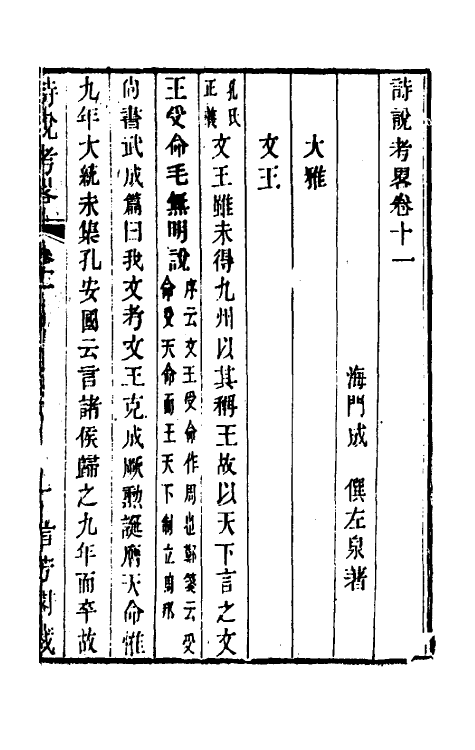 詩說考畧卷十一
海門成 僎左泉著
大雅
文王
孔氏正義文王雖未得九州以其稱王故以天下言之文
王受命毛無明說序云文王受命作周也鄭箋云受命受天命而王天下制立周邦
尙書武成篇曰我文考文王克成厥勲誕膺天命惟
九年大統未集孔安國云言諸侯歸之九年而卒故
詩說考畧 卷十一